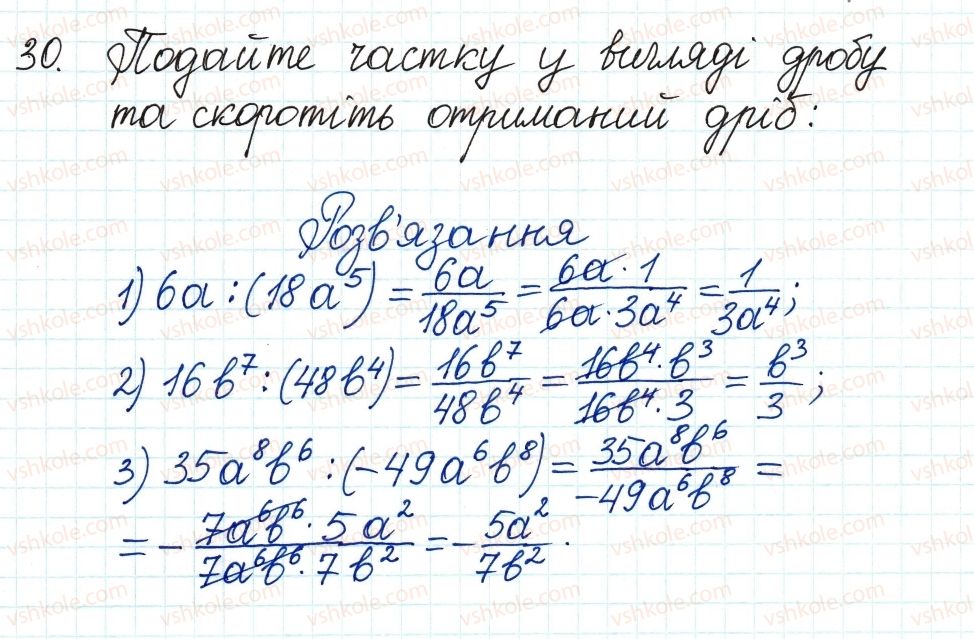 30. Подайте частку у вигляді дробу
та скоротіть отриманий дріб:
Розв'язання
1) 6a : (18a⁵) = 6a/18a⁵ = 6a·1/6a·3a⁴ = 1/3a⁴;
2) 16b⁷ : (48b⁴) = 16b⁷/48b⁴ = 16b⁴·b³/16b⁴·3 = b³/3;
3) 35a⁸b⁶ : (-49a⁶b⁸) = 35a⁸b⁶/-49a⁶b⁸ =
= - 7a⁶b⁶·5a²/7a⁶b⁶·7b² = - 5a²/7b².